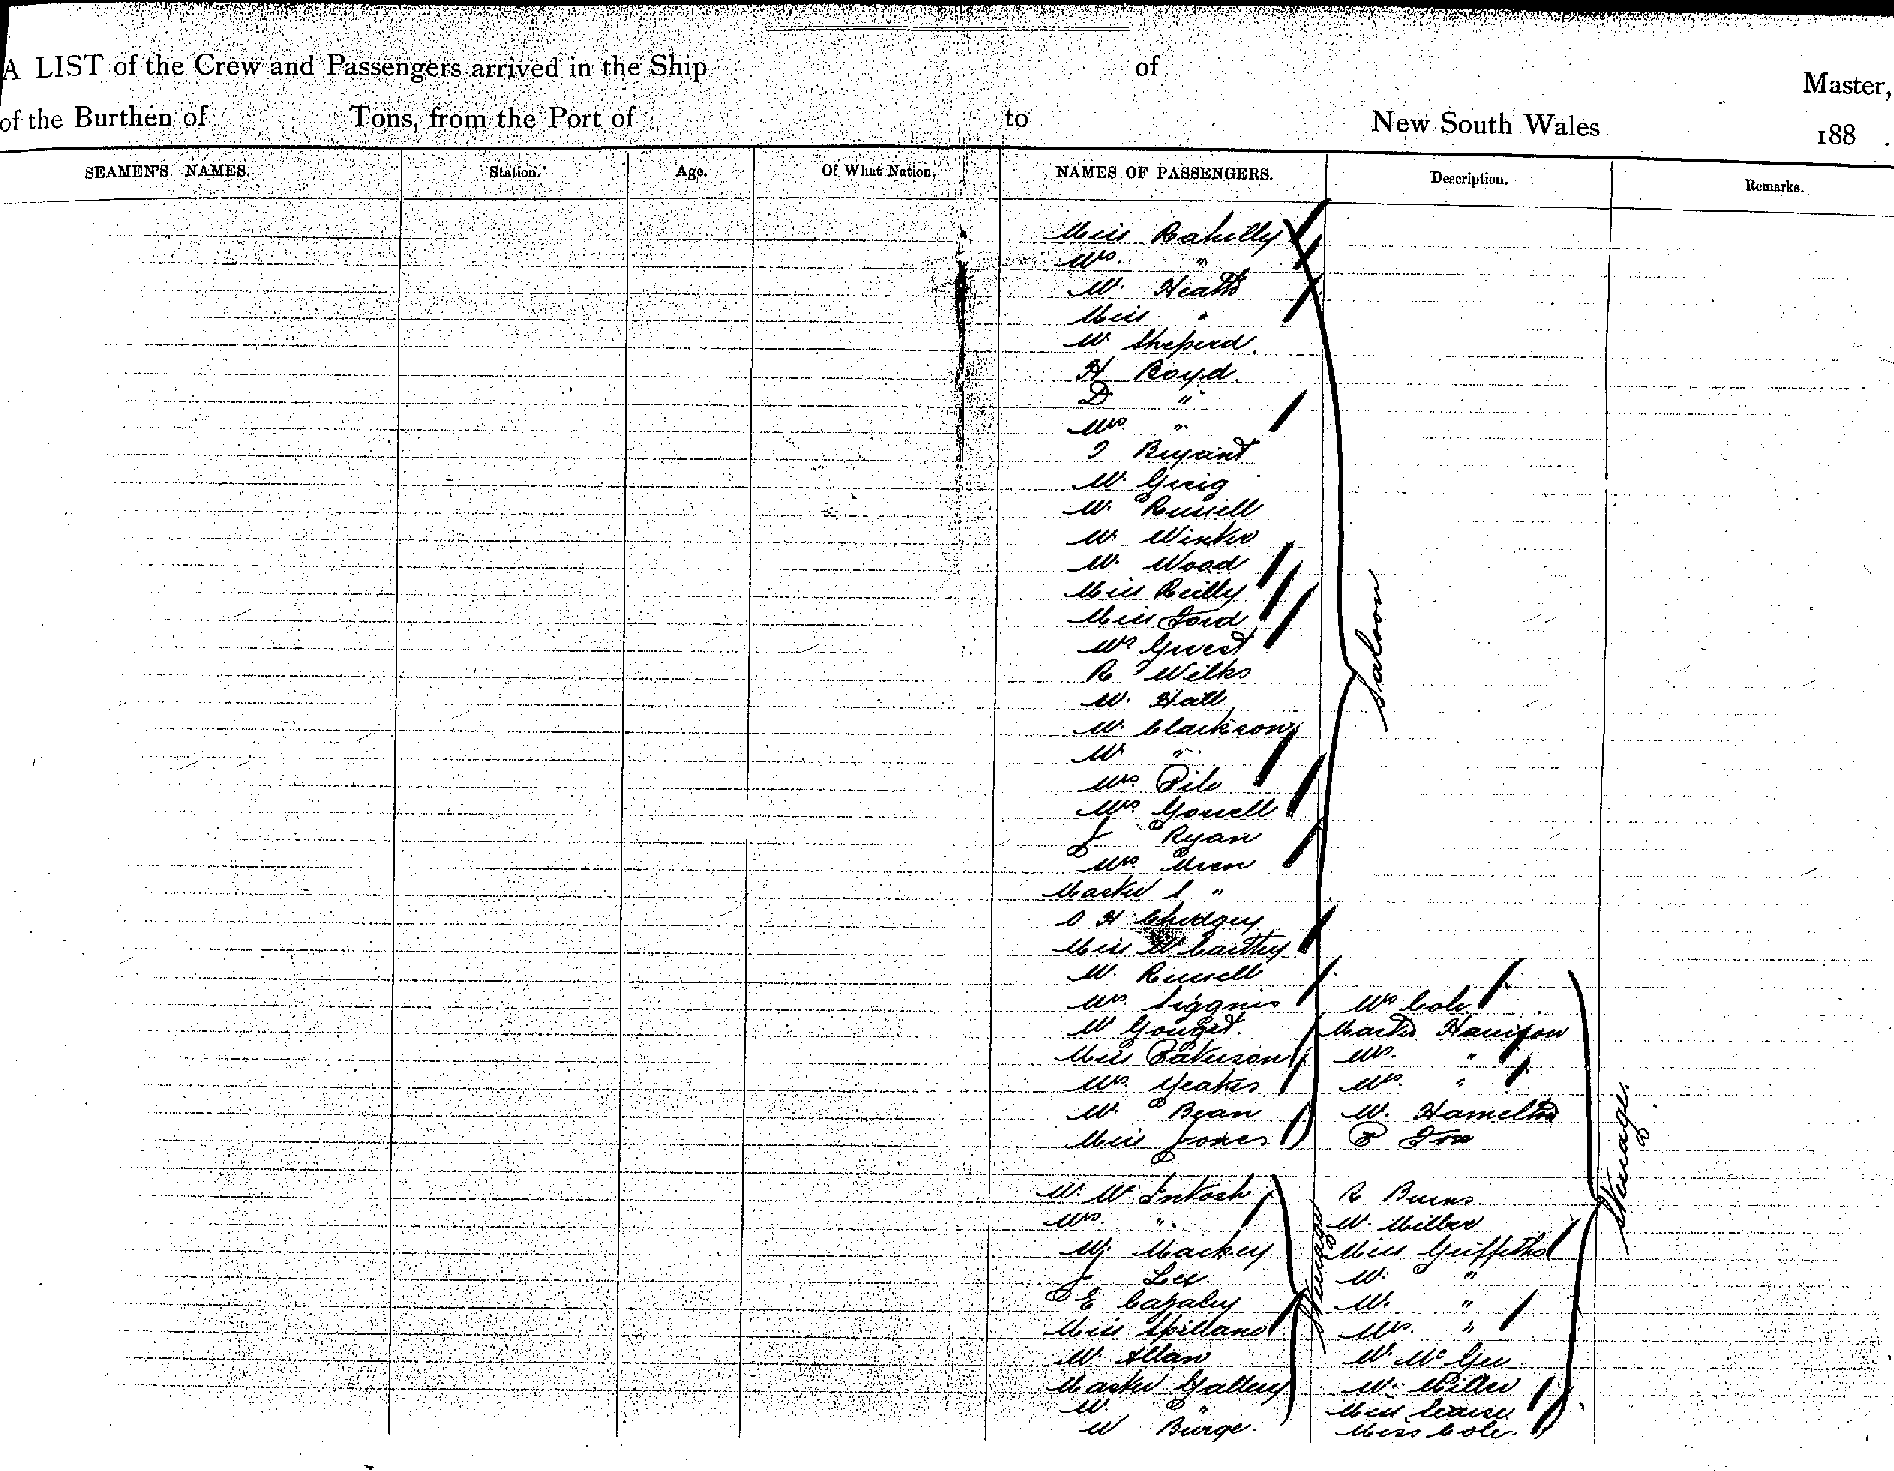 A LIST of the Crew and Passengers arrived in the Ship of Master,
of the Burthen of Tons, from the Port of to New South Wales 188 .
SEAMEN'S NAMES. Station. Age. Of What Nation. NAMES OF PASSENGERS. Description. Remarks.
Miss
Mrs. "
Mr. Heath
Miss "
Mr Sheperd.
H Boyd.
D "
Mrs "
Bryant
Mr Greig
Mr. Russell
Mr Winter
Mr. Wood
Miss Reilly
Miss Ford
Guest
R Wilks
Mr. Hall
Mr. Clarkson
Mr "
Mrs Pile
Mrs
J Ryan
Mrs
Master "
H
Miss McCarthy
Mr. Russell
Mrs.
Mr
Miss Paterson
Mrs. Yeates
Mr. Ryan
Miss Jones
Saloon
Mr McIntosh
Mrs "
Mackey
J Lee
E
Miss Spillane
Mr Allan
Master Gallery
Mr "
Mr Burge.
Steerage
Mrs Cole
Master Harrison
Mrs. "
Mrs. "
Mr. Hamelton
P Fox
R Burns
Mr. Miller
Miss Griffiths
Mr. "
Mr. "
Mrs. "
Mr McGee
Mr. Miller
Miss
Miss Cole
Steerage.